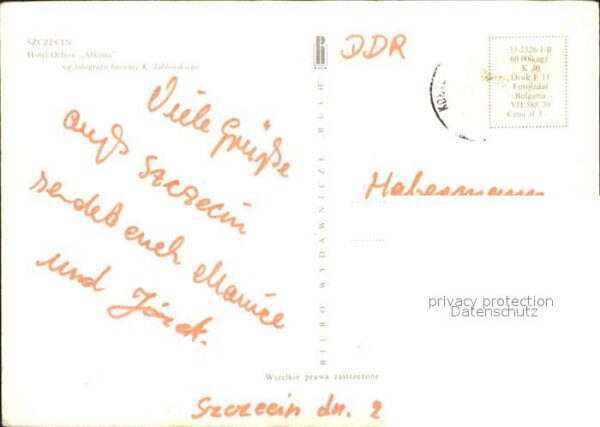 SZCZECIN
Hotel Orbisu „Arkona"
wg fotografii barwnej K. Jabłońskiego
Viele Grüße
aus Szczecin
sendet euch
und Józek.
Szczecin dn. 2
BIURO WYDAWNICZE „RUCH"
Wszelkie prawa zastrzeżone
DDR
33-2526 I B
60 000 egz.
K 30
Druk F 11
Fotoizdat
Bulgaria
VII 588/70
Cena zł 3.-
Habermann
privacy protection
Datenschutz